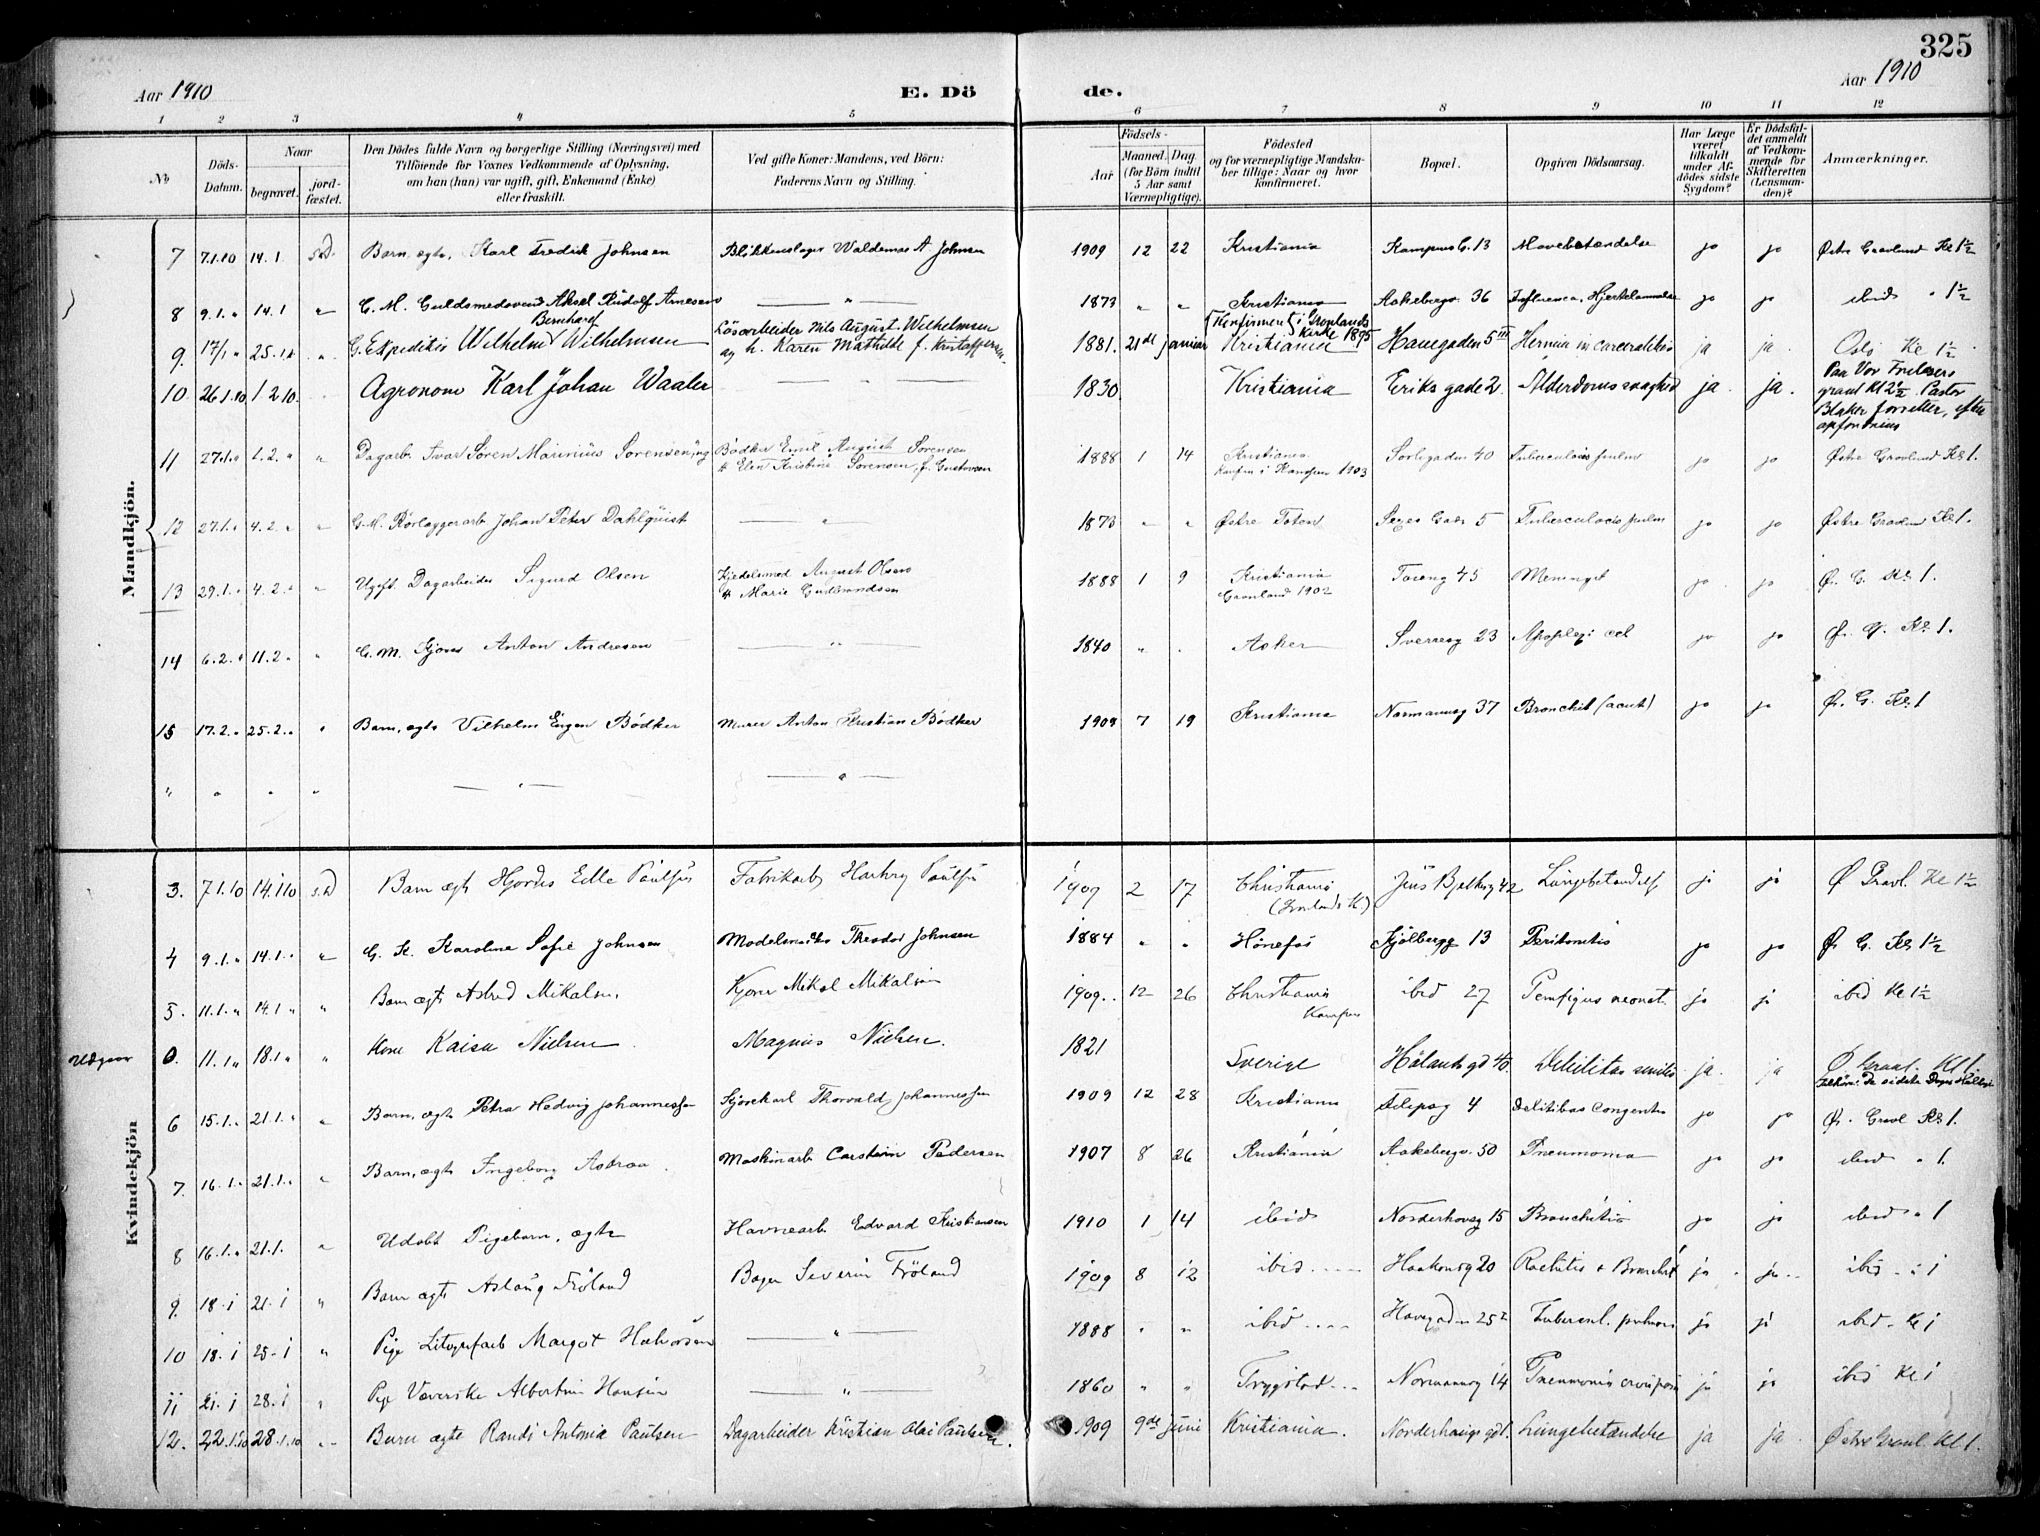 325
Aar 1910
E. Dö de.
Aar 1910
1 2 3 4 5 6 7 8 9 10 11 12
No
Döds-Datum.
Naar
begravet.
jord-fæstet.
Den Dödes fulde Navn og borgerlige Stilling (Næringsvei) med
Tilföiende for Voxnes Vedkommende af Oplysning,
om han (hun) var ugift, gift, Enkemand (Enke)
eller fraskilt.
Ved gifte Koner: Mandens, ved Börn:
Faderens Navn og Stilling.
Födsels-
Aar
Maaned. Dag
(for Börn indtil
5 Aar samt
Værnepligtige).
Födested
og for værnepligtige Mandska-
ber tillige: Naar og hvor
konfirmeret.
Bopæl.
Opgiven Dödsaarsag.
Har Læge
været
tilkaldt
under Af-
dödes sidste
Sygdom?
Er Dödsfal-
det anmeldt
af Vedkom-
mende for
Skifteretten
(Lensman-
den)?
Anmærkninger.
Mandkjön.
7 7.1.10 14.1. Barn, ægte, Karl Fredrik Johnsen Blikkenslager Waldemar A. Johnsen 1909 12 22 Kristiania Kampens G. 13 Mavebetændelse ja ja Østre Gravlund Kl 1½
8 9.1. " 14.1 " G. M. Guldsmedsvend Aksel Rudolf Arnesen — " — 1873 " " Kristiania Aakebergv. 36 Influenca, Hjertelammelse ja ja ibid " 1½
Bernhard
(Konfirment i Grønlands Kirke 1895
9. 17/1 " 25.1. G. Expeditør Wilhelm Wilhelmsen Løsarbeider Nils August Wilhelmsen
og h. Karen Mathilde f. Kristoffersen. 1881. 21de januar Kristiania Havegaden 5 III Hernia incarceratio ja ja Oslo Kl 1½
10 26.1.10 1 2 10. Agronom Karl Johan Waaler — 1830. Kristiania Eriks gade 2. Alderdomssvaghed ja. ja. Paa Vor Frelsers
gravl Kl 2½ Pastor
Blaker forretter, efter
11 27.1. " 1.2. " " Dagarb. Ivar Søren Marinius Sørensen, ug Bødker Emil August Sørensen
& Elen Kristine Sørensen, f. Gustavsen 1888 1 14 Kristiania
Konfirm i Kampen 1903 Sørligaden 40 Tuberculosis pulm ja ja Østre Gravlund Kl 1.
12 27.1. " 4.2. " " G. M. Rørlæggerarb Johan Peter Dahlquist — " 1873 " " Østre Toten Sexes Gade 5 Tuberculosis pulm ja ja Østre Gravlund Kl 1.
13 29.1. " 4.2. " " Ugift. Dagarbeider Sigurd Olsen Kjedelsmed August Olsen
& Marie Gudbrandsen 1888 1 9 Kristiania
Grønland 1902 Tøieng 45 Meninget ja ja Ø. G. Kl 1.
14 6.2. " 11.2. " " G. M. Kjører Anton Andresen — " — 1840 " . Asker Sverresg 23 Apoplexi cel ja ja Ø. G. Kl 1.
15 17.2. " 25.2. " " Barn, ægte Vilhelm Eugen Bødker Murer Anton Kristian Bødker 1909 7 19 Kristiania Normannsg 37 Bronchit (acut) ja ja Ø. G. Kl 1
" " " " — " — — " —
Kvindekjön
3. 7.1.10 14.1.10 Barn ægte Hjørdis Edle Paulsen Fabrikarb Paulsen 1909 2 17 Christiania
(Grønlands K.) Jens Bjelkesg 42 Lungebetændelse ja ja Ø Gravl. Kl 1½
4 9.1. " 14.1. " " G. K. Karoline Sofie Johnsen Modelsnekker Theodor Johnsen 1884 " " Hønefos Kjølbergg 13 Peritonitis ja ja Ø. G. Kl 1½
5. 11.1. " 14.1 " " Barn ægte Astrid Mikalsen. Kjører Mikal Mikalsen 1909. 12 26 Christiania
Kampen ibid 27 Pemfigus neonat. ja ja ibid Kl 1½
Udgaar 0. 11.1 " 18.1 " " Kone Kaisa Nielsen. Magnus Nielsen. 1821 Sverige Hølandsgd 40. Debilitas senilis ja. ja Ø. Gravl. Kl 1.
6 15.1. " 21.1. " " Barn, ægte Petra Hedvig Johannessen Kjørekarl Thorvald Johannessen 1909 12 28 Kristiania Filipsg 4 Debilitas congenita ja ja Ø. Gravl Kl 1.
7. 16.1. " 21.1. " " Barn, ægte Ingeborg Astrea. Maskinarb Carstein Pedersen 1907 8 26 Kristiania Aakebergv. 50 Pneumonia ja ja ibid " 1.
8 16.1. " 21.1. " Udøbt Pigebarn, ægte Havnearb. Edvard Kristiansen 1910 1 14 ibid Norderhovsg 15 Bronchitis ja ja ibid " 1
9. 18.1 21.1 " Barn ægte Aslaug Frøland Bager Severin Frøland 1909 8 12 ibid Haakonsg 20 Rachitis & Bronchit ja ja ibid " 1
10 18.1 25.1 " Pige Litografarb Margot Halvorsen — " — 1888 " " ibid Havegaden 25 2 Tubercul. pulmon ja ja ibid Kl 1
11 21.1 28.1 " Pige Væverske Albertine Hansen — " — 1860 " " Trygstad Normannsg 14 Pneumonia crouposa ja ja ibid Kl 1
12. 22.1.10 28.1.10 Barn ægte Randi Antonia Paulsen Dagarbeider Kristian Olai Paulsen. 1909 9de juni Kristiania. Norderhovsgd 1. Lungebetændelse ja ja. Østre Gravl Kl 1.